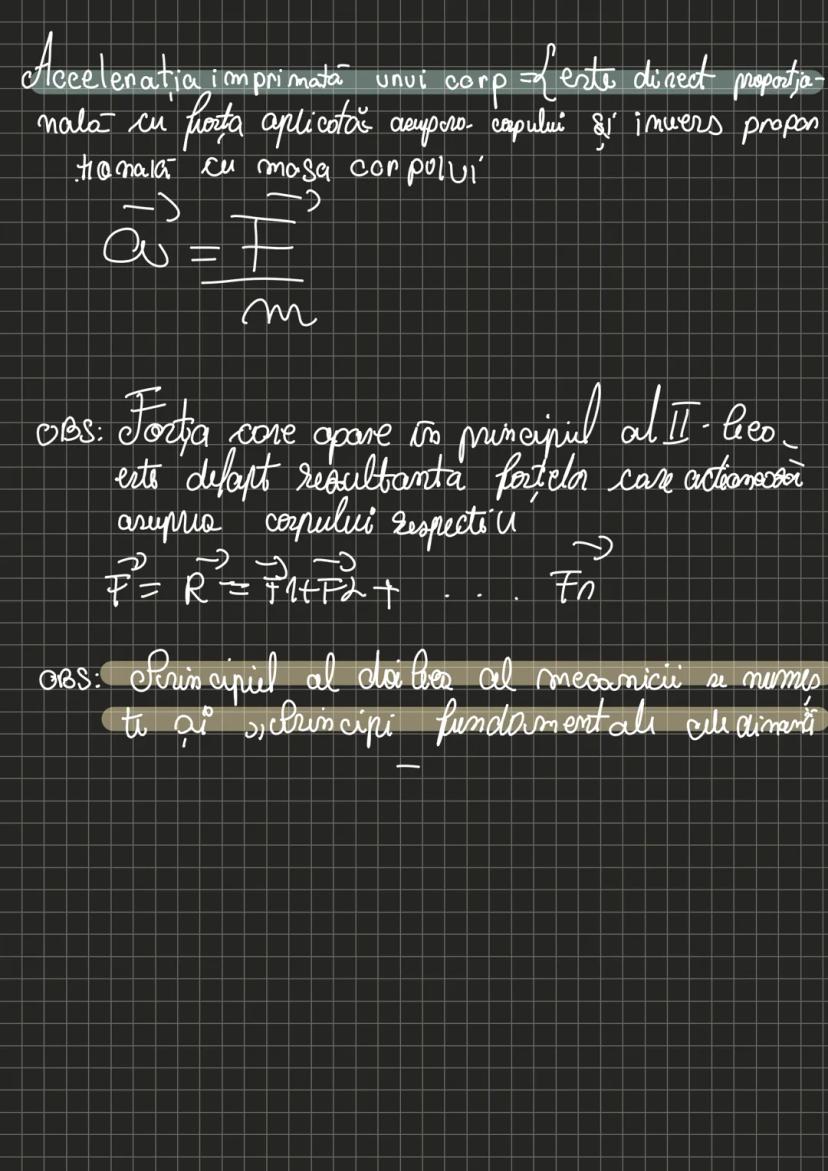 Accelerația imprimată unui corp ⇒{este direct proporția-
nală cu forța aplicată asupra corpului și invers propor
țională cu masa corpului
a⃗ = F⃗
m
OBS: Forța care apare în principiul al II-lea
este defapt rezultanta forțelor care acționează
asupra corpului respectiv
F⃗ = R⃗ = F⃗1+F⃗2+ . . . . F⃗n
OBS: Principiul al doilea al mecanicii se numeș
te și „Principi fundamentale ale dinamii